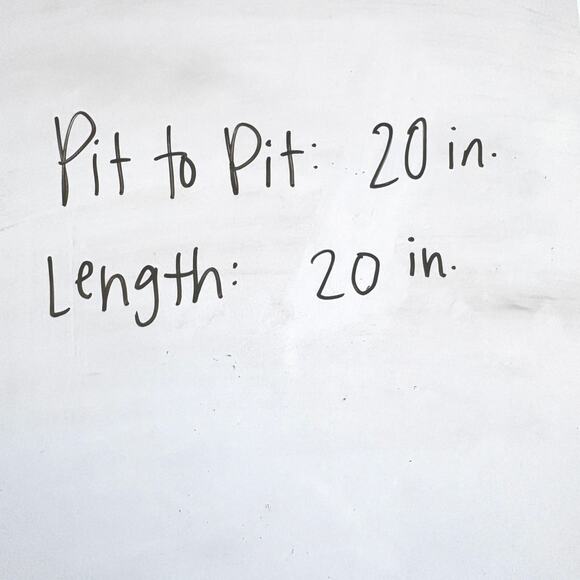 Pit to Pit: 20 in.
Length: 20 in.